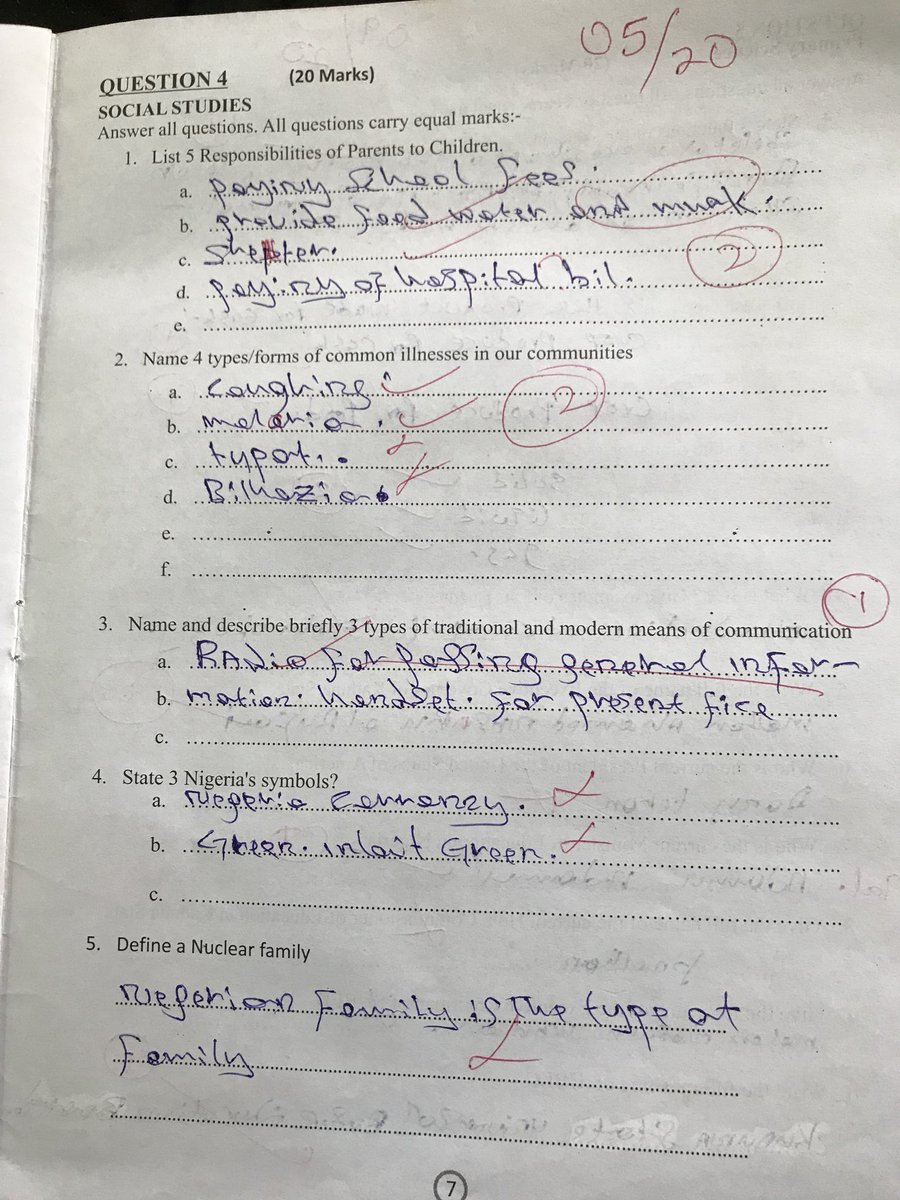 05/20
QUESTION 4 (20 Marks)
SOCIAL STUDIES
Answer all questions. All questions carry equal marks:-
1. List 5 Responsibilities of Parents to Children.
a. payiny School fees.
b. provide food water and
c. Shepter.
d. payiny of hospital bil.
e.
2
2. Name 4 types/forms of common illnesses in our communities
a. Coughing
b. malaria.
c. typot.
d. Bilhazia
e.
f.
2
1
3. Name and describe briefly 3 types of traditional and modern means of communication
a. RAdio for passing general infor-
b. mation. handset. for present fice
c.
4. State 3 Nigeria's symbols?
a.
b. Green. inlait Green.
c.
5. Define a Nuclear family
Family is The type at
Family
7